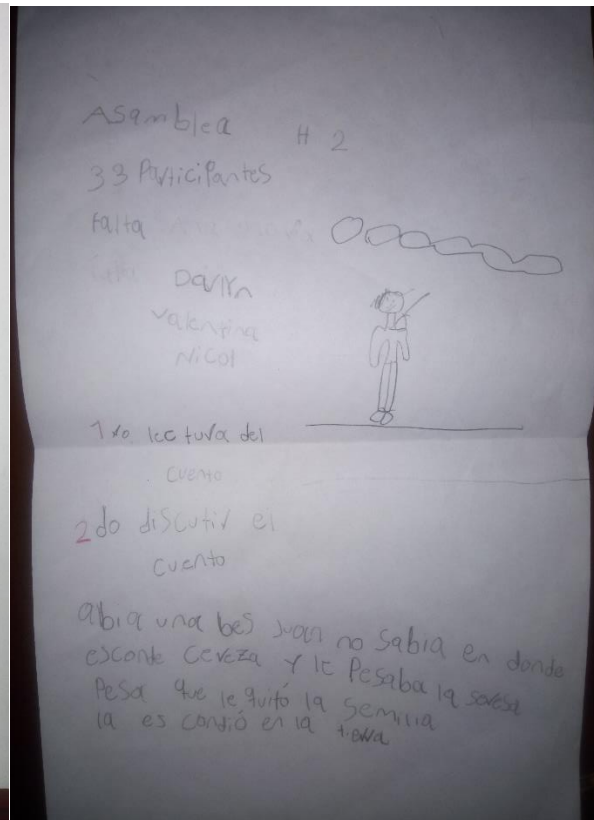 Asamblea # 2
33 Participantes
Falta
Darlyn
Valentina
Nicol
1ro lectura del
cuento
2do discutir el
cuento
abia una bes juan no sabia en donde
esconde ceveza y le Pesaba la sevesa
Pesa que le quitó la semilla
la es condió en la tierra